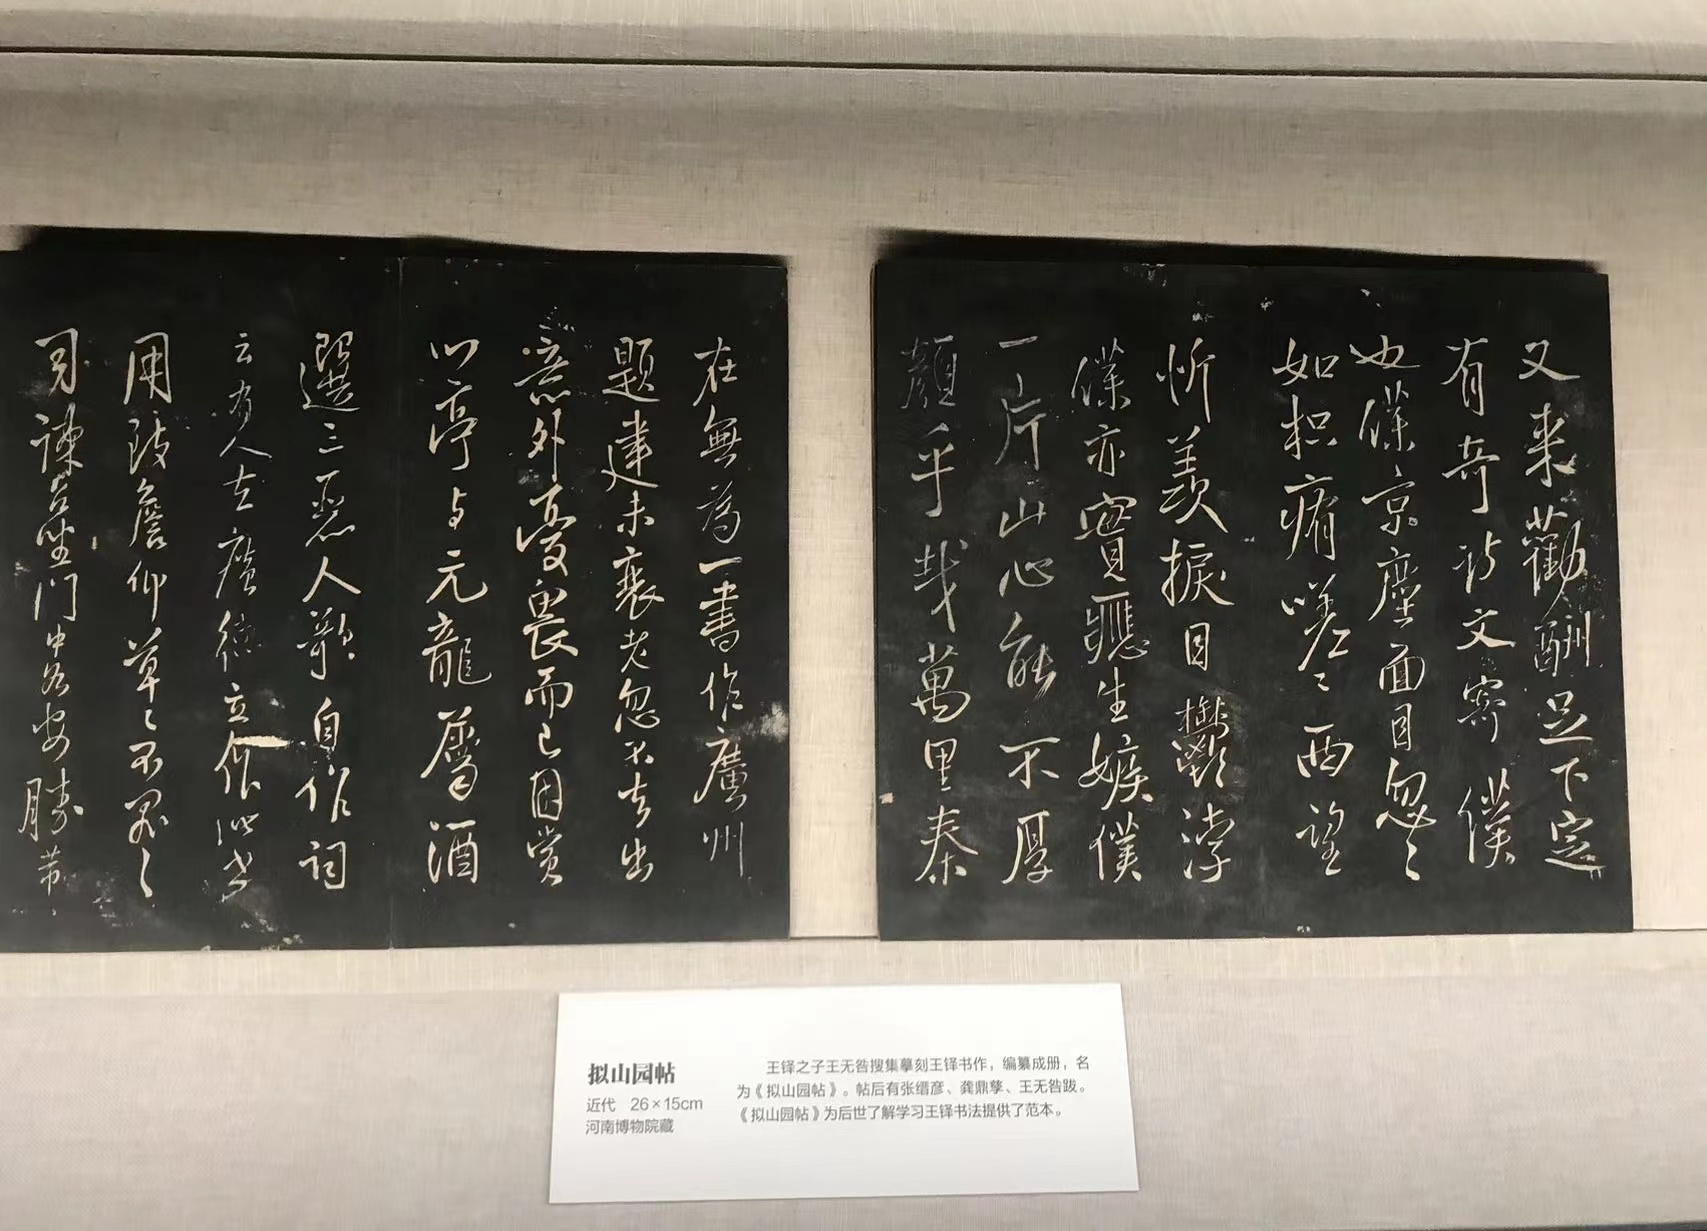 又来勸酬足下定
有奇诗文寄僕
也僕京塵面目忽〻
如枳痏嗟〻西望
忻羡捩目鬱浡
僕亦實應生嫉僕
一片山心能不厚
顔乎哉萬里秦
在無為一書作廣州
題建未衰老忽不去出
意外憂畏而已因賞
心亭与元龍屬酒
選三 人歌自作詞
云有人在廣 立作
用 詹仰草〻不罪〻
司諫 坐門中 安勝
拟山园帖
近代 26×15cm
河南博物院藏
王铎之子王无咎搜集摹刻王铎书作，编纂成册，名
为《拟山园帖》。帖后有张缙彦、龚鼎孳、王无咎跋。
《拟山园帖》为后世了解学习王铎书法提供了范本。